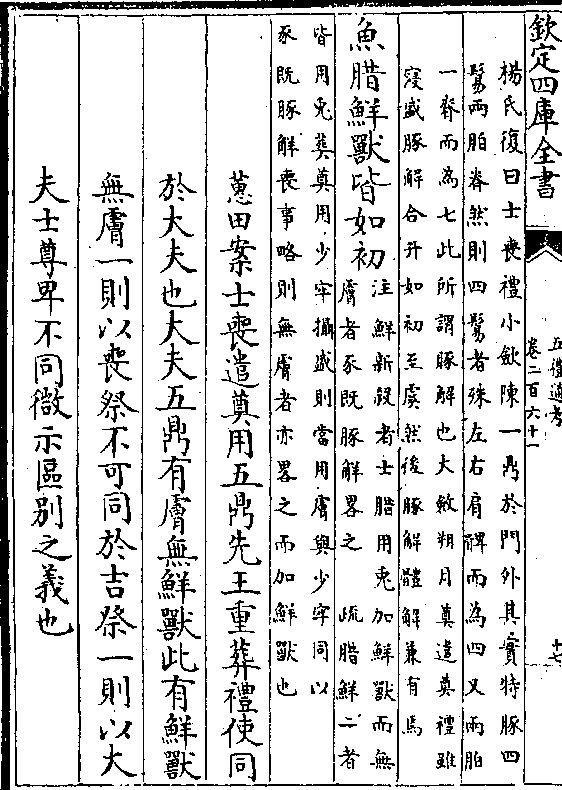 欽定四庫全書
五禮通考
卷二百六十一
十七
楊氏復曰士喪禮小斂陳一鼎於門外其實特豚四
鬄兩胉脊然則四鬄者殊左右肩髀而為四又兩胉
一脊而為七此所謂豚解也大斂朔月奠遣奠禮雖
寖盛豚解合升如初至虞然後豚解體解兼有焉
魚腊鮮獸皆如初
注鮮新殺者士腊用兎加鮮獸而無
膚者豕既豚解畧之 疏腊鮮二者
皆用兎葬奠用少牢攝盛則當用膚與少牢同以
豕既豚解喪事略則無膚者亦畧之而加鮮獸也
蕙田案士喪遣奠用五鼎先王重葬禮使同
於大夫也大夫五鼎有膚無鮮獸此有鮮獸
無膚一則以喪祭不可同於吉祭一則以大
夫士尊卑不同微示區別之義也